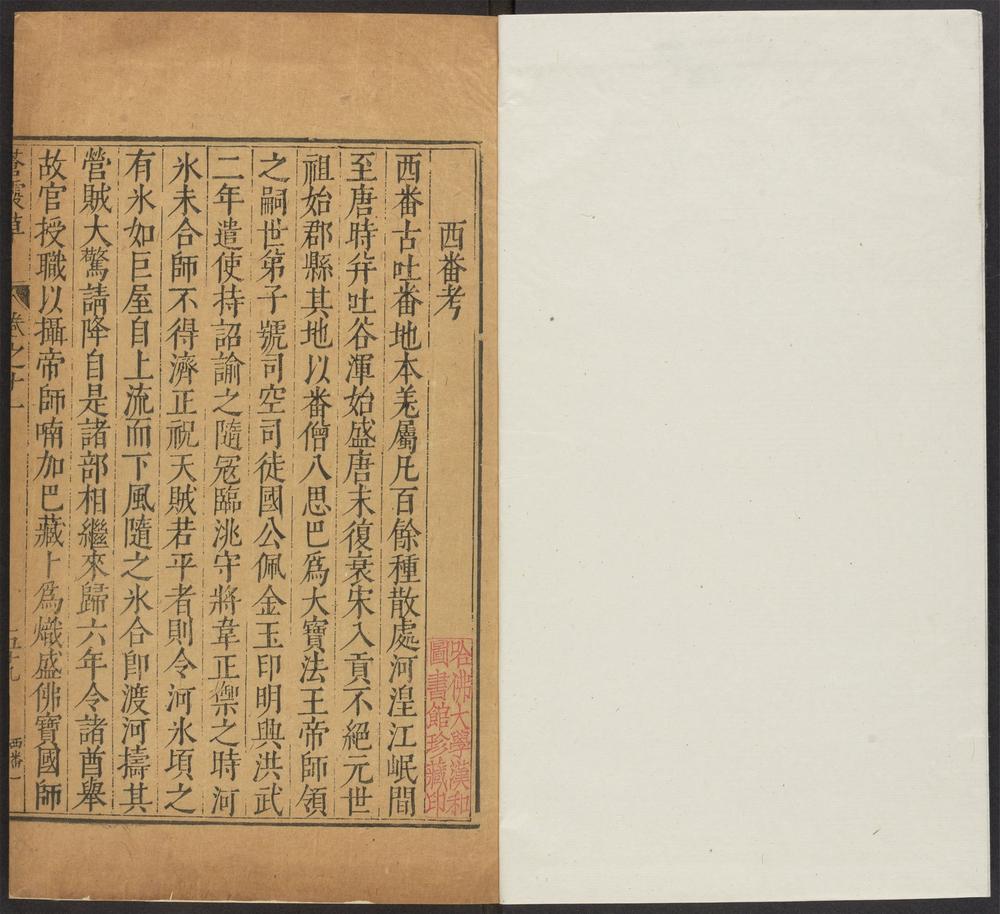 西番考
西番古吐番地本羌屬凡百餘種散處河湟江岷間
至唐時并吐谷渾始盛唐末復衰宋入貢不絕元世
祖始郡縣其地以番僧八思巴爲大寶法王帝師領
之嗣世弟子號司空司徒國公佩金玉印明興洪武
二年遣使持詔諭之隨寇臨洮守將韋正禦之時河
氷未合師不得濟正祝天賊若平者則令河氷頃之
有氷如巨屋自上流而下風隨之氷合卽渡河擣其
營賊大驚請降自是諸部相繼來歸六年令諸酋舉
故官授職以攝帝師喃加巴藏卜爲熾盛佛寶國師
荅霞草
卷之十一
西番一
哈佛大學漢和
圖書館珍藏印